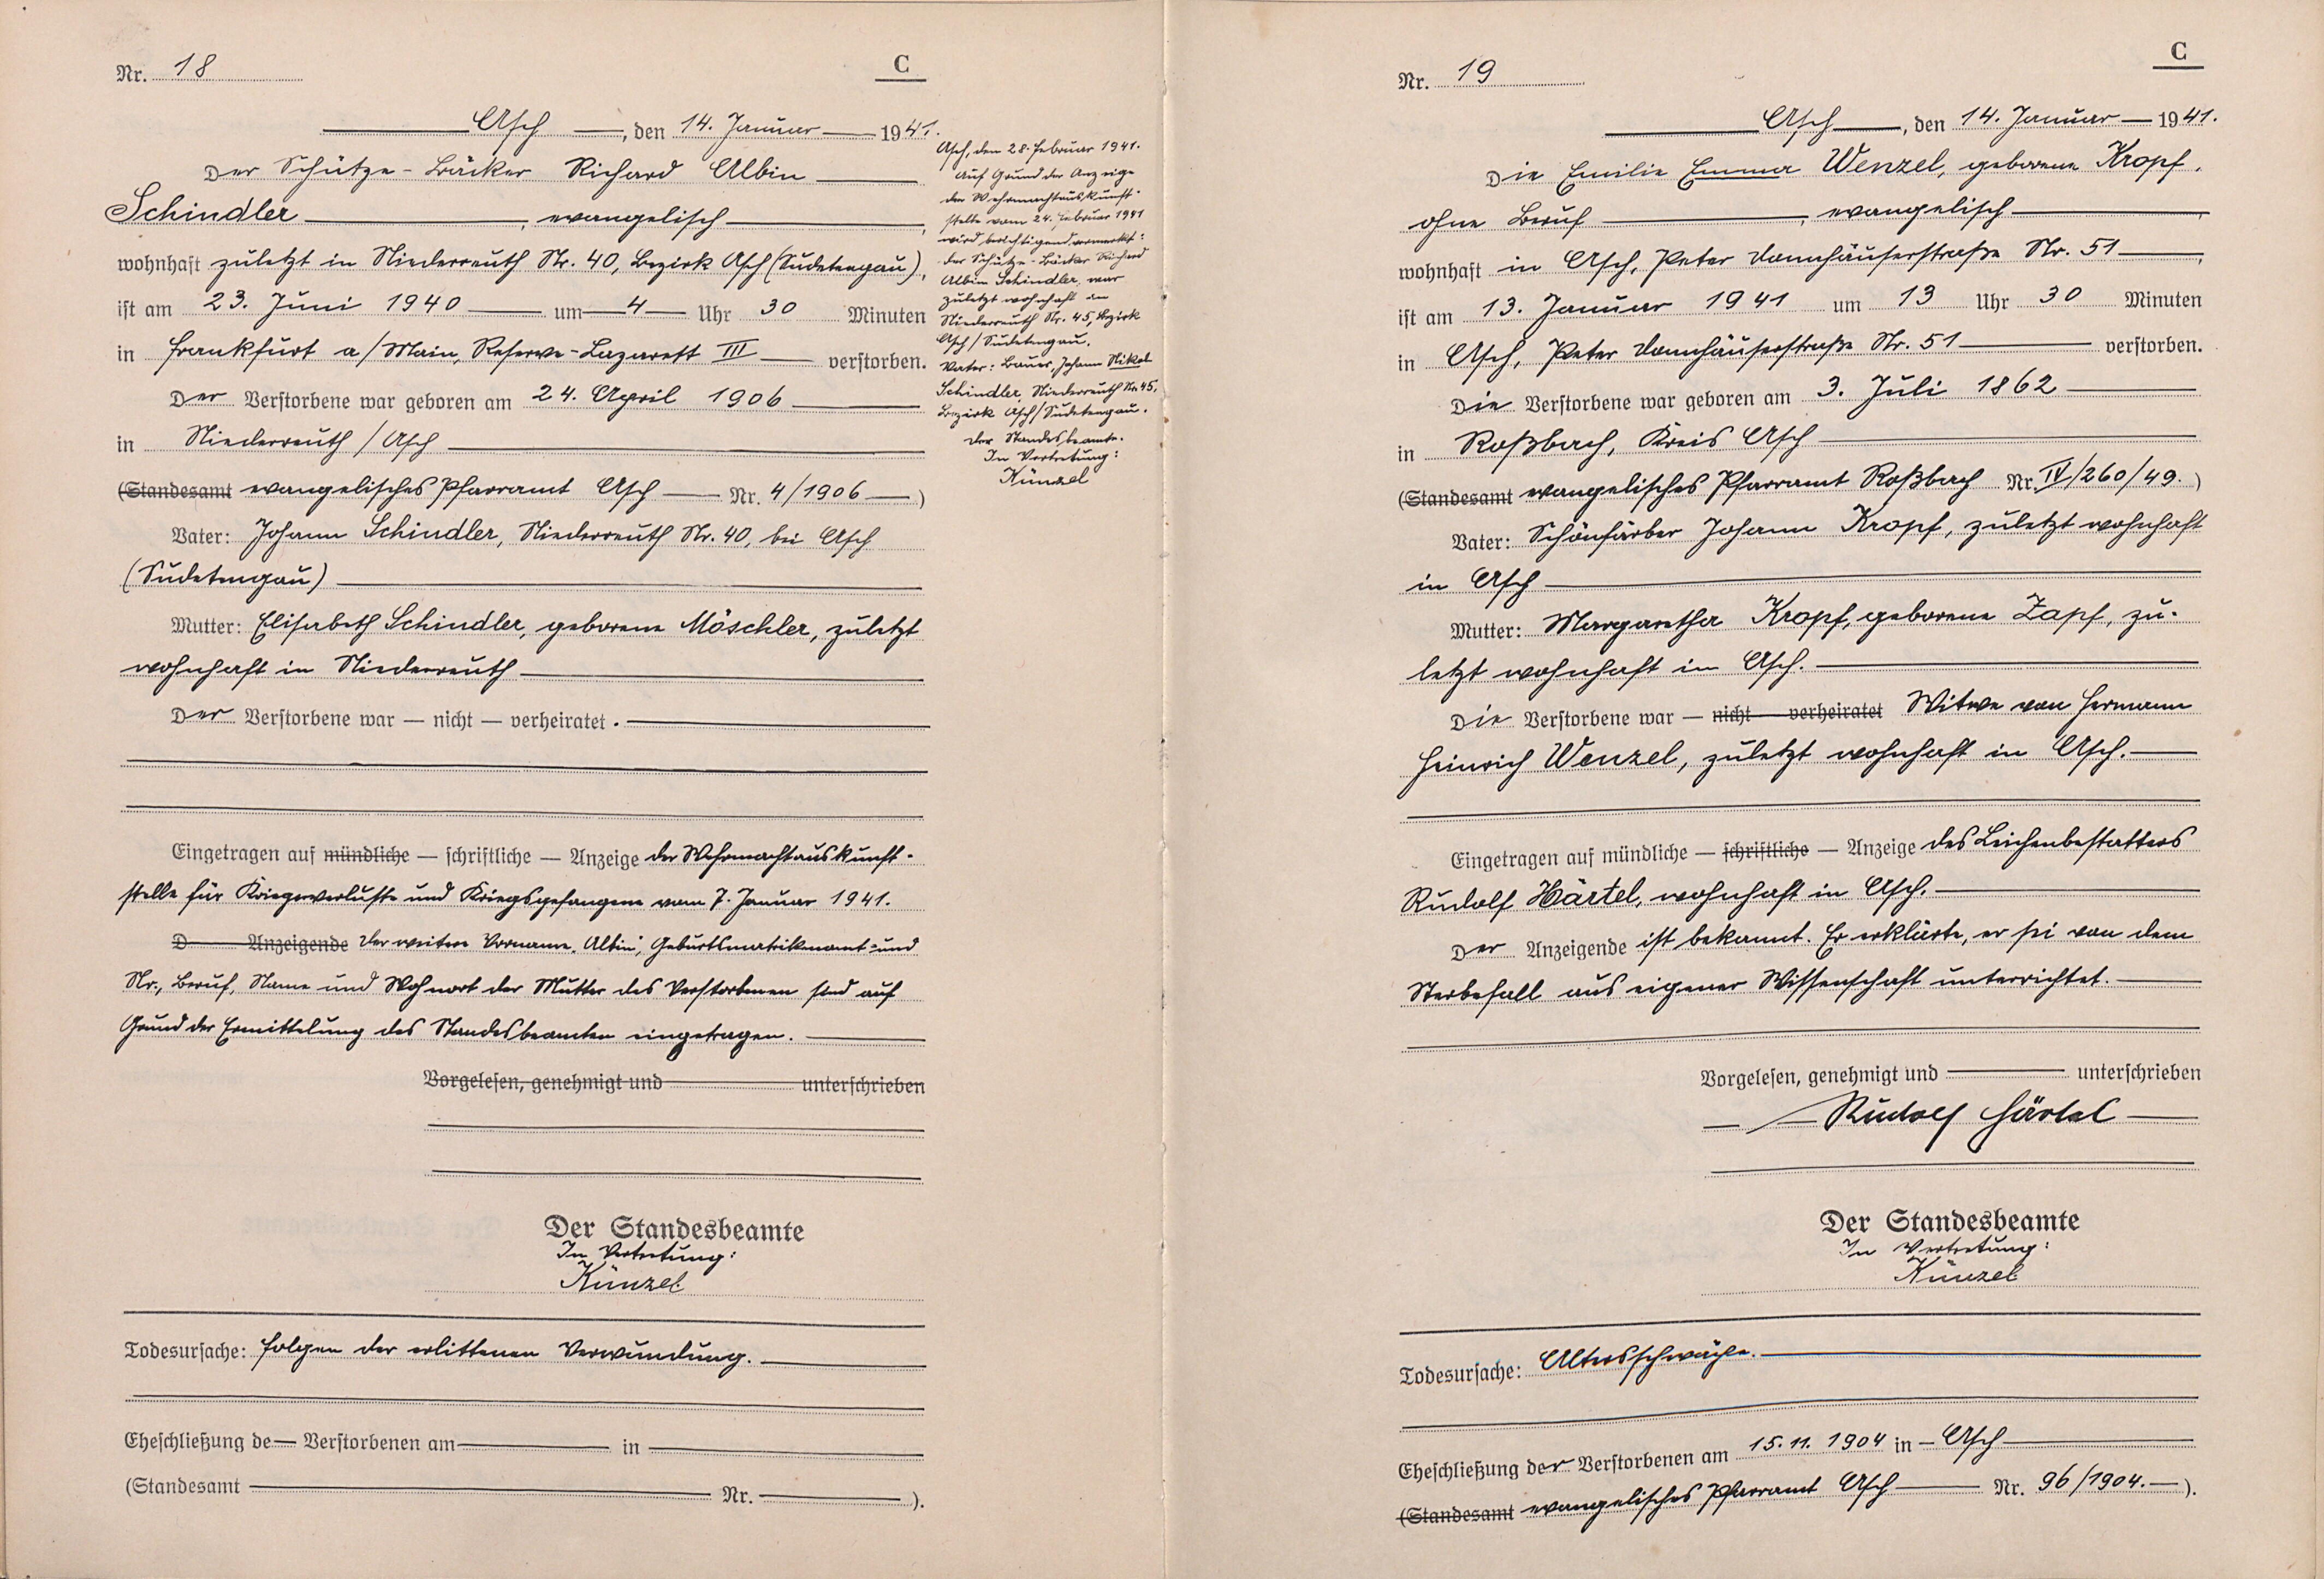 Nr. 18
C
Asch, den 14. Januar 1941.
Der Schütze - Bäcker Richard Albin
Schindler, evangelisch,
wohnhaft zuletzt in Niederreuth Nr. 40, Bezirk Asch (Sudetengau),
ist am 23. Juni 1940 um 4 Uhr 30 Minuten
in Frankfurt a/Main, Reserve-Lazarett III verstorben.
Der Verstorbene war geboren am 24. April 1906
in Niederreuth / Asch
(Standesamt evangelisches Pfarramt Asch Nr. 4/1906)
Vater: Johann Schindler, Niederreuth Nr. 40, bei Asch
(Sudetengau)
Mutter: Elisabeth Schindler, geborene Möschler, zuletzt
wohnhaft in Niederreuth
Der Verstorbene war — nicht — verheiratet.
Eingetragen auf mündliche — schriftliche — Anzeige der Wehrmachtauskunft-
stelle für Kriegerverluste und Kriegsgefangene vom 7. Januar 1941.
D Anzeigende Der weitere Vorname „Albin“, Geburtsmatrikenamt- und
Nr., Beruf, Name und Wohnort der Mutter des Verstorbenen sind auf
Grund der Ermittelung des Standesbeamten eingetragen.
Vorgelesen, genehmigt und unterschrieben
Der Standesbeamte
In Vertretung:
Künzel
Todesursache: Folgen der erlittenen Verwundung.
Eheschließung de Verstorbenen am in
(Standesamt Nr. ).
Asch, den 28. Februar 1941.
Auf Grund der Anzeige
der Wehrmachtauskunft-
stelle vom 24. Februar 1941
wird berichtigend vermerkt:
Der Schütze - Bäcker Richard
Albin Schindler, war
zuletzt wohnhaft in
Niederreuth Nr. 45, Bezirk
Asch / Sudetengau.
Vater: Bauer, Johann Nikol
Schindler, Niederreuth Nr. 45,
Bezirk Asch / Sudetengau.
Der Standesbeamte.
In Vertretung:
Künzel
Nr. 19
C
Asch, den 14. Januar 1941.
Die Emilie Emma Wenzel, geborene Kropf,
ohne Beruf, evangelisch,
wohnhaft in Asch, Peter Donnhäuserstraße Nr. 51,
ist am 13. Januar 1941 um 13 Uhr 30 Minuten
in Asch, Peter Donnhäuserstraße Nr. 51 verstorben.
Die Verstorbene war geboren am 3. Juli 1862
in Roßbach, Kreis Asch
(Standesamt evangelisches Pfarramt Roßbach Nr. IV/260/49.)
Vater: Schönfärber Johann Kropf, zuletzt wohnhaft
in Asch
Mutter: Margaretha Kropf, geborene Zapf, zu-
letzt wohnhaft in Asch.
Die Verstorbene war — nicht — verheiratet Witwe von Hermann
Heinrich Wenzel, zuletzt wohnhaft in Asch.
Eingetragen auf mündliche — schriftliche — Anzeige des Leichenbestatters
Rudolf Härtel, wohnhaft in Asch.
Der Anzeigende ist bekannt. Er erklärte, er sei von dem
Sterbefall aus eigener Wissenschaft unterrichtet.
Vorgelesen, genehmigt und unterschrieben
Rudolf Härtel
Der Standesbeamte
In Vertretung:
Künzel
Todesursache: Altersschwäche.
Eheschließung der Verstorbenen am 15. 11. 1904 in Asch
(Standesamt evangelisches Pfarramt Asch Nr. 96/1904.).